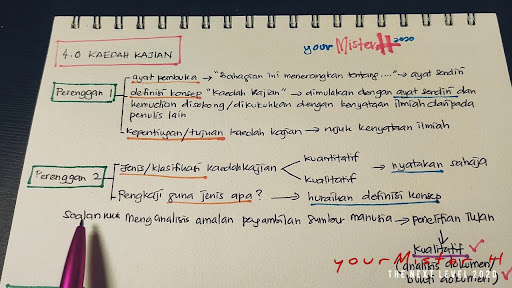 your Mister H 2020
4.0 KAEDAH KAJIAN
Perenggan 1
ayat pembuka → "Bahagian ini menerangkan tentang...." → ayat sendiri
definisi konsep "Kaedah Kajian" → dimulakan dengan ayat sendiri dan
kemudian disokong/dikukuhkan dengan kenyataan ilmiah daripada
penulis lain
kepentingan/tujuan kaedah kajian → rujuk kenyataan ilmiah
Perenggan 2
Jenis/klasifikasi kaedah kajian
kuantitatif
kualitatif
→ nyatakan sahaja
Pengkaji guna jenis apa? → huraikan definisi konsep
Soalan KKK menganalisis amalan pengambilan sumber manusia → penelitian
Kualitatif ✓
(analisis dokumen/
bukti dokumen) ✓
your Mister H
THE NEXT LEVEL 2020